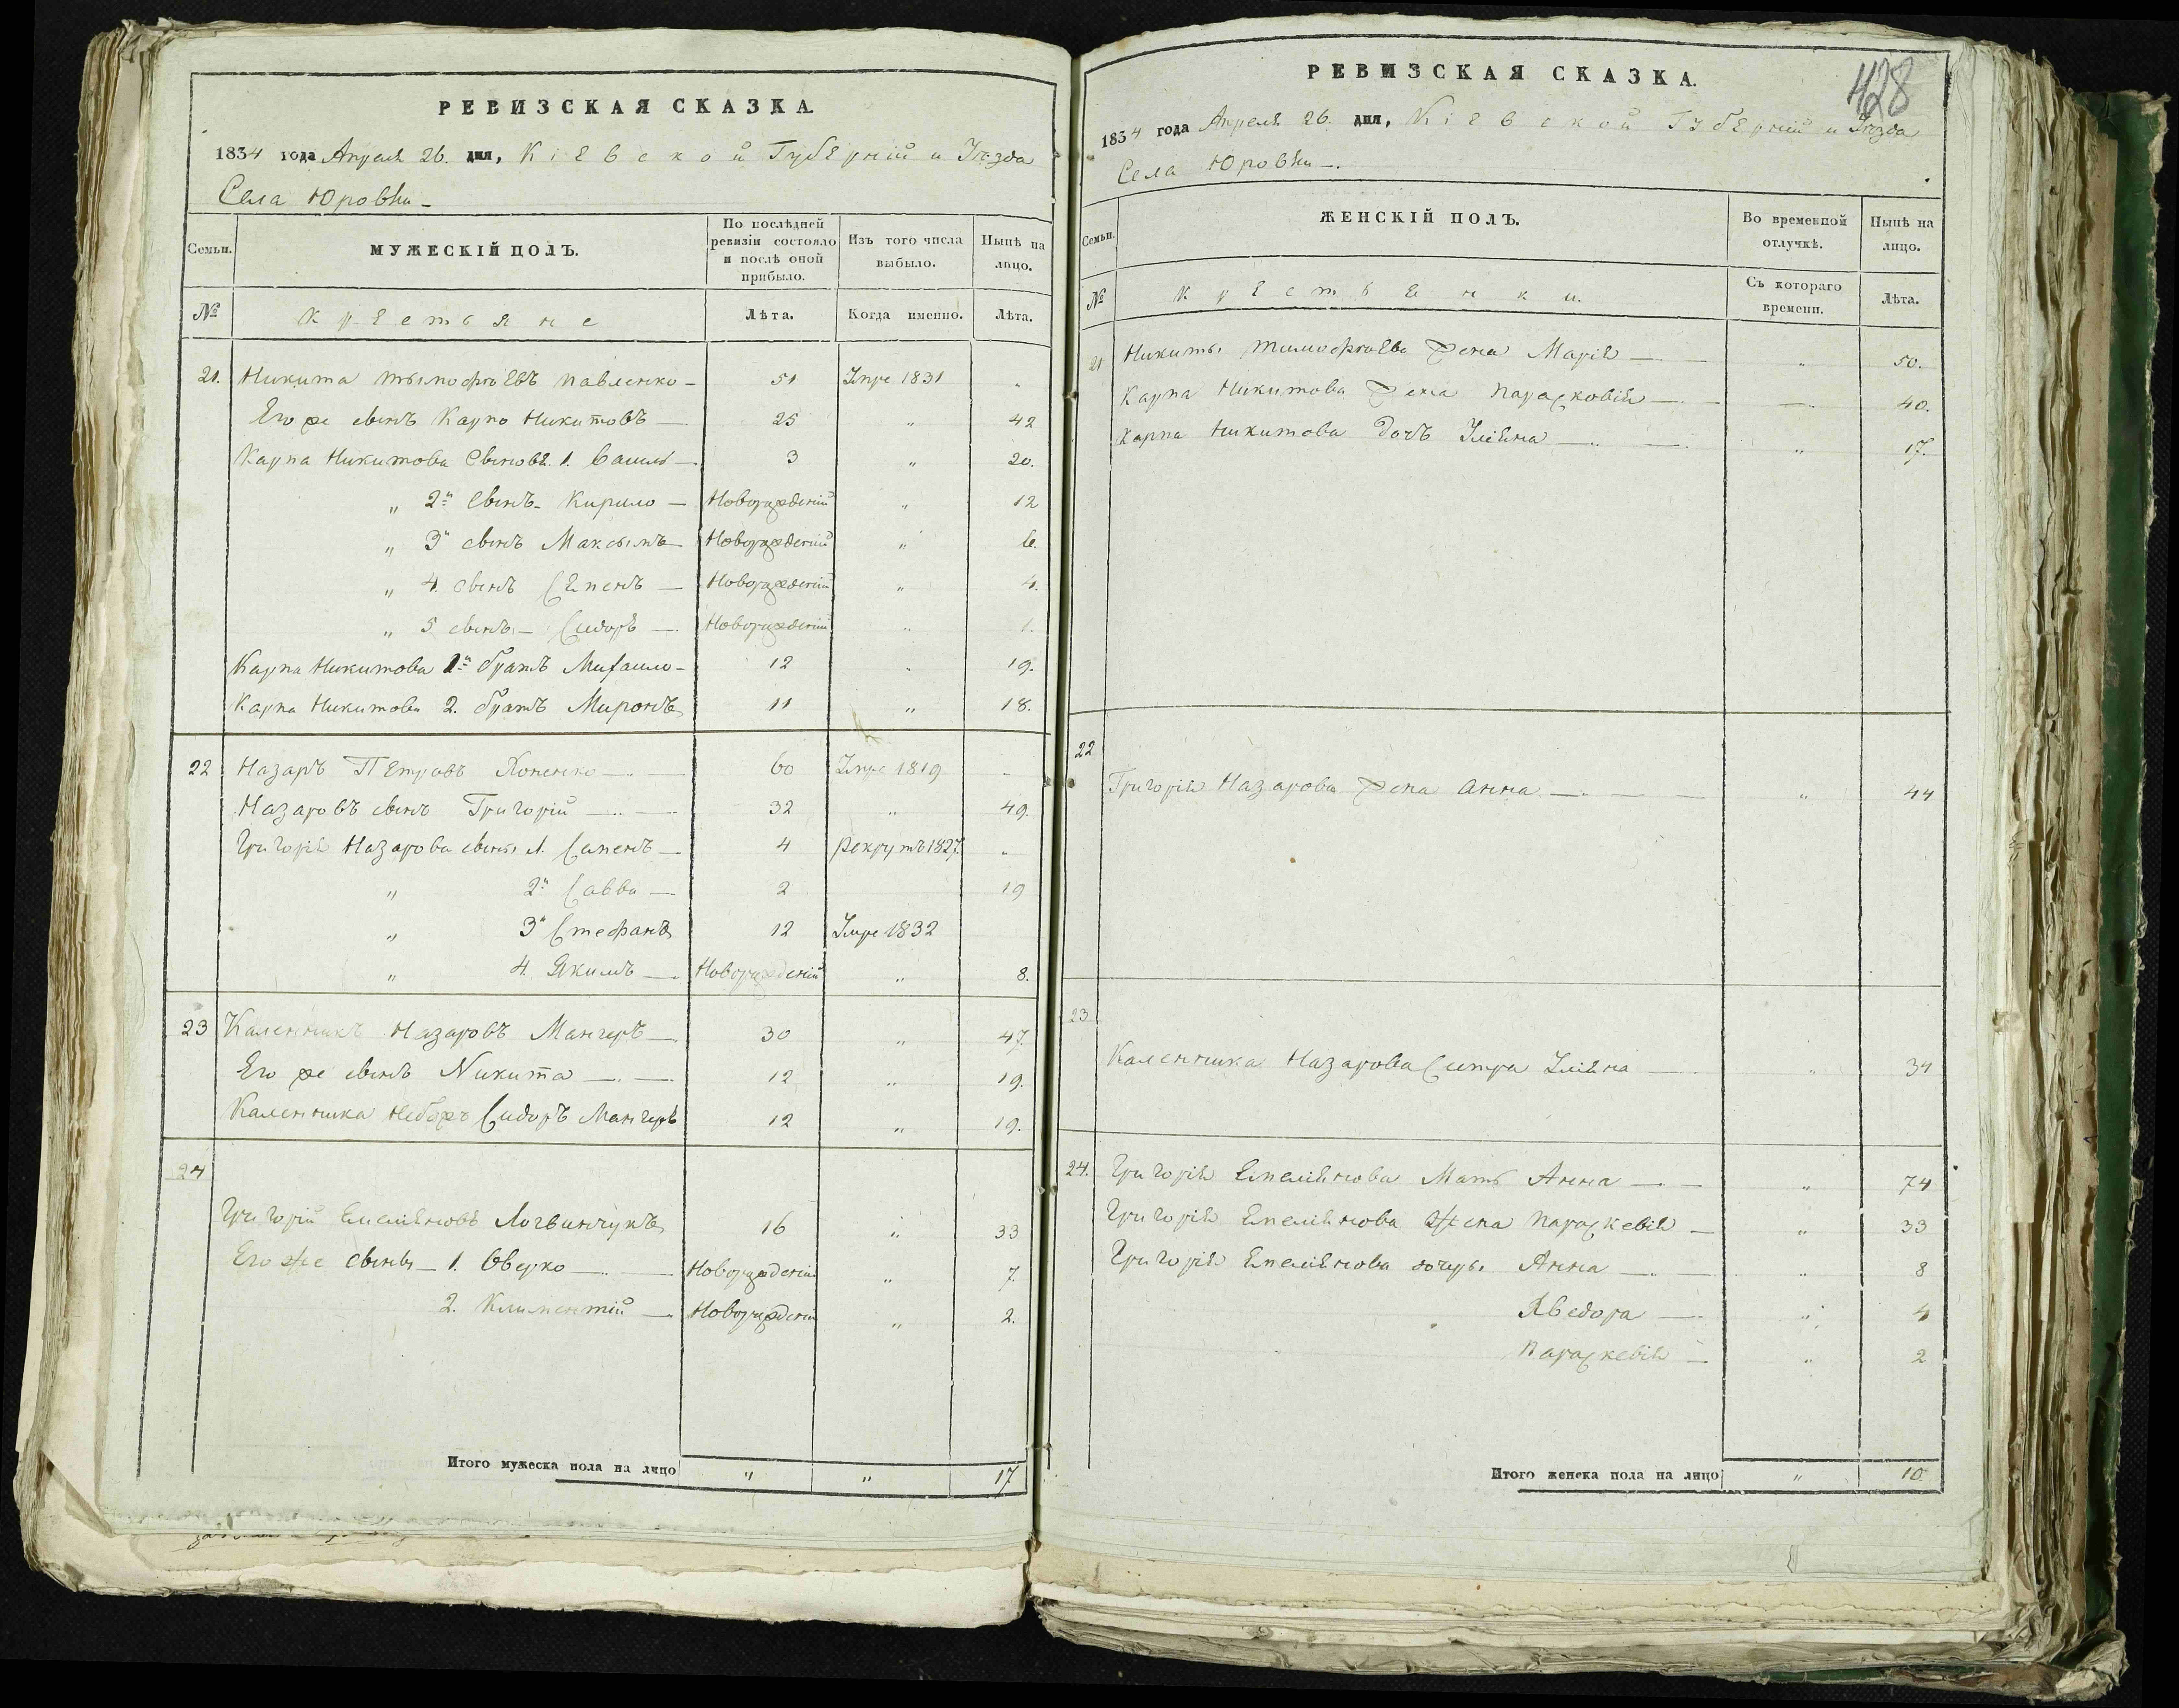 РЕВИЗСКАЯ СКАЗКА
1834 года Апреля 26. дня, Кіевской Губерніи и Уѣзда
Села Юровки
Семьи. МУЖЕСКІЙ ПОЛЪ. По послѣдней ревизіи состояло и послѣ оной прибыло. Изъ того числа выбыло. Нынѣ на лицо.
№ Крестьяне Лѣта. Когда именно. Лѣта.
21. Никита Тымофѣевъ Павленко 51 Умре 1831 "
Его же сынъ Карпо Никитовъ 25 " 42
Карпа Никитова Сыновя. 1. Василь 3 " 20.
" 2й Сынъ Кирило Новорожденій " 12
" 3й сынъ Максымъ Новорожденій " 6.
" 4. сынъ Семенъ Новорожденій " 4.
" 5 сынъ Сидоръ Новорожденій " 1.
Карпа Никитова 1й братъ Михаило 12 " 19.
Карпа Никитова 2. братъ Миронъ 11 " 18.
22 Назаръ Петровъ 60 Умре 1819 "
Назаровъ сынъ Григорій 32 " 49.
Григорія Назарова сыны 1. Саменъ 4 рекрутъ 1827. "
" 2й Савва 2 19
" 3й Стефанъ 12 Умре 1832
" 4. Якимъ Новорожденій " 8.
23 Каленникъ Назаровъ 30 " 47.
Его же сынъ Никита 12 " 19.
Каленника Небожъ Сидоръ 12 " 19.
24
Григорій Емеляновъ Логвинчукъ 16 " 33
Его же сыны 1. Оверко Новорожденій " 7.
2. Климентій Новорожденій " 2.
Итого мужеска пола на лицо " " 17
428
РЕВИЗСКАЯ СКАЗКА.
1834 года Апреля 26. дня, Кіевской Губерніи и Уѣзда
Села Юровки
Семьи. ЖЕНСКІЙ ПОЛЪ. Во временной отлучкѣ. Нынѣ на лицо.
№ Крестьянки. Съ котораго времени. Лѣта.
21 Никиты Тимофѣева жена Марія " 50.
Карпа Никитова жена Парасковія 40.
Карпа Никитова дочь Уліяна " 17.
22
Григорія Назарова жена Анна " 44
23
Каленника Назарова Систра Уліяна " 34
24. Григорія Емеліянова Мать Анна " 74
Григорія Емеліянова Жена Параскевія " 33
Григорія Емеліянова дочеры Анна " 8
Яведора " 4
Параскевія " 2
Итого женска пола на лицо " 10.